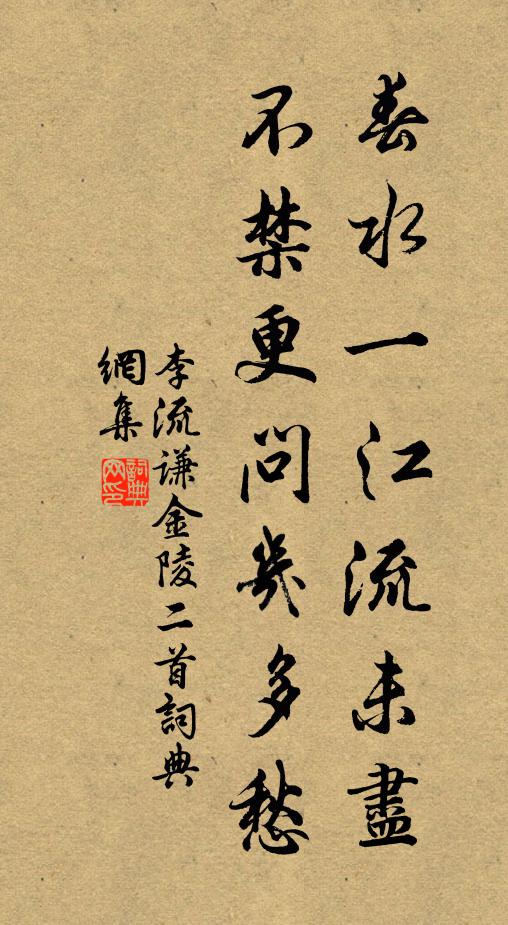 春水一江流未盡
不禁更問幾多愁
李流謙金陵二首詞典
網集
詞典
网印